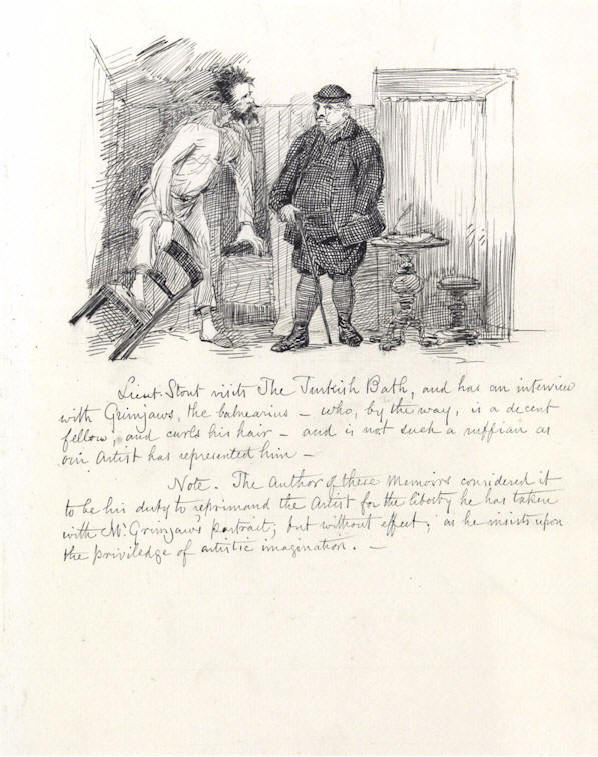 Lieut. Stout visits The Turkish Bath, and has an interview
with Grimjaws, the balnearius – who, by the way, is a decent
fellow, and curls his hair – and is not such a ruffian as
our Artist has represented him –
Note. The Author of these Memoirs considered it
to be his duty to reprimand the Artist for the liberty he has taken
with Mr. Grimjaw's portrait; but without effect; as he insists upon
the priviledge of artistic imagination. –